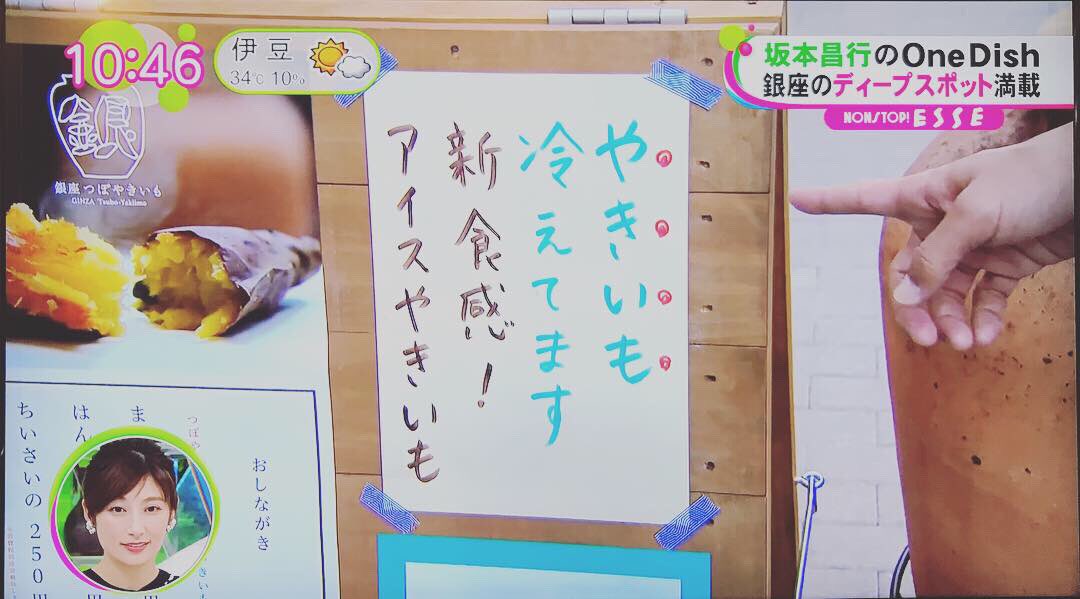 10:46
伊豆
34℃ 10%
坂本昌行のOne Dish
銀座のディープスポット満載
NONSTOP! ESSE
銀
銀座つぼやきいも
GINZA Tsubo-Yakiimo
やきいも
冷えてます
新食感!
アイスやきいも
おしながき
つぼや
きいも
ま
はん
ちいさいの 250円
円
円